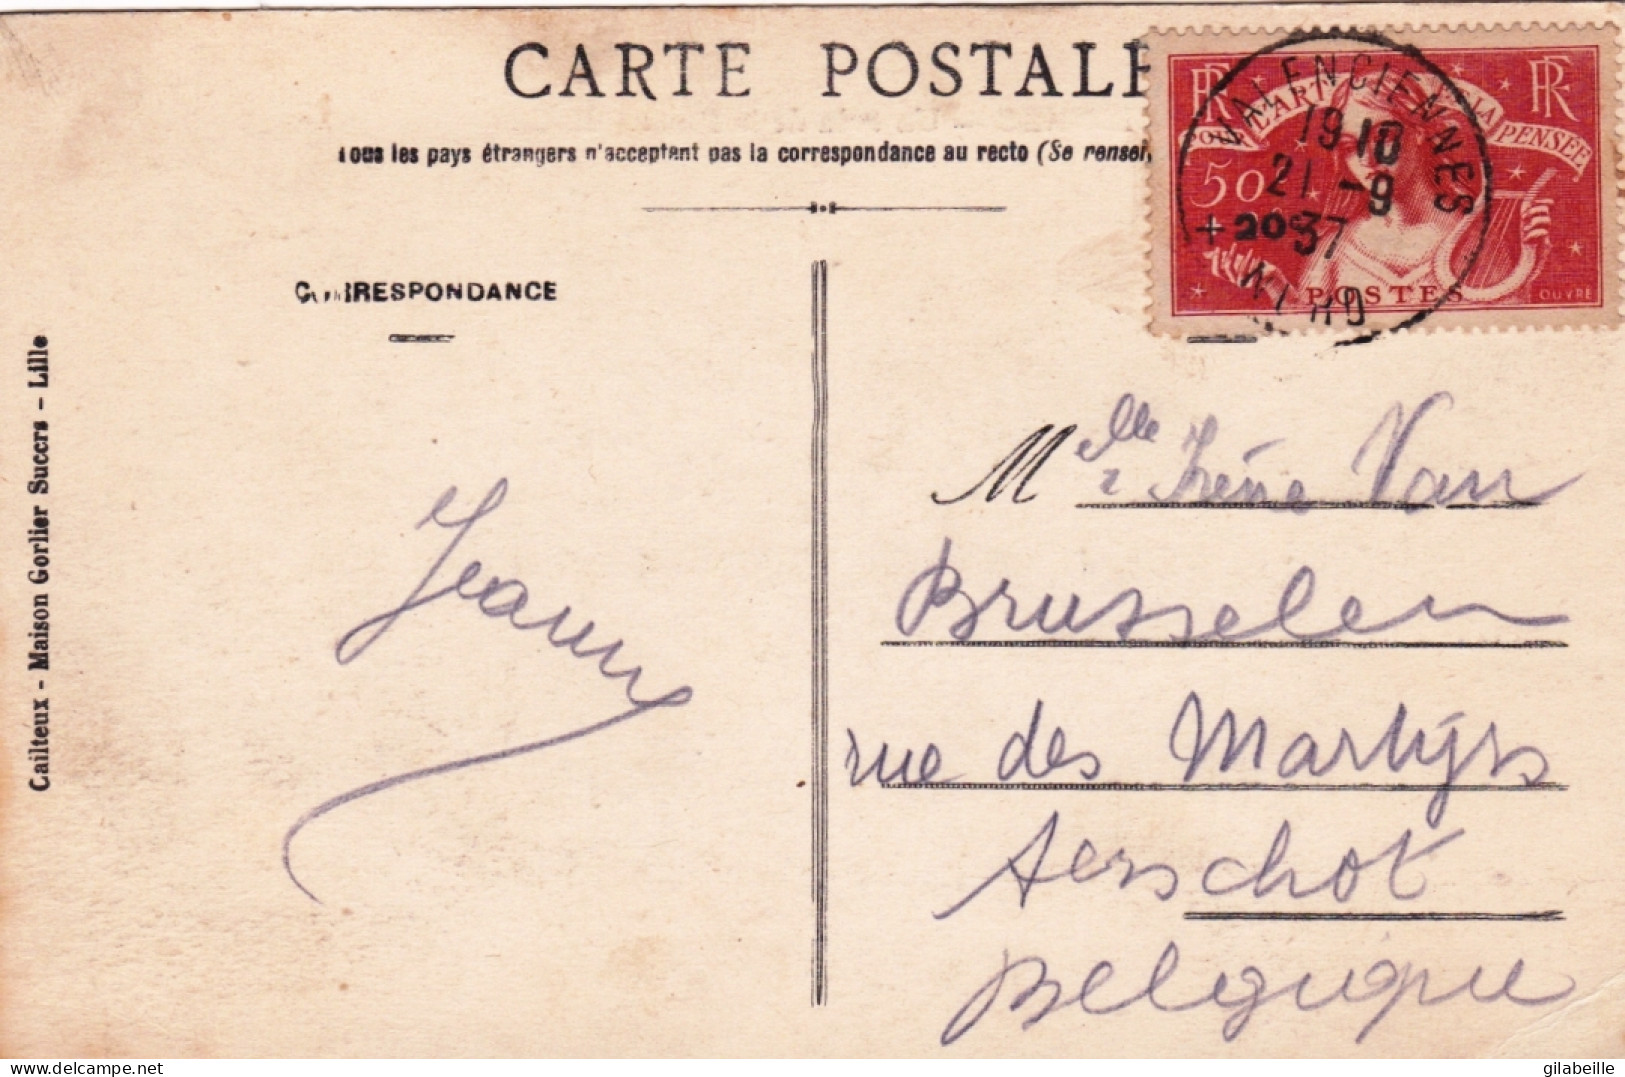 CARTE POSTALE
Tous les pays étrangers n'acceptent pas la correspondance au recto (Se rensei
CORRESPONDANCE
Cailteux - Maison Gorlier Succrs - Lille
RF
RF
POUR L'ART
LA PENSÉE
50c
+20c
POSTES
OUVRÉ
VALENCIENNES
19 10
21 -9
37
NORD
Jeanne
Melle Irène Van
Brusselen
rue des Martyrs
Aerschot
Belgique
delcampe.net
gilabeille